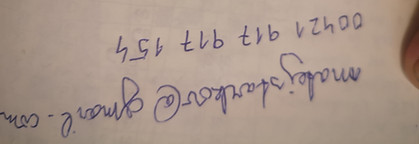 @gmail.com
00421 917 917 154